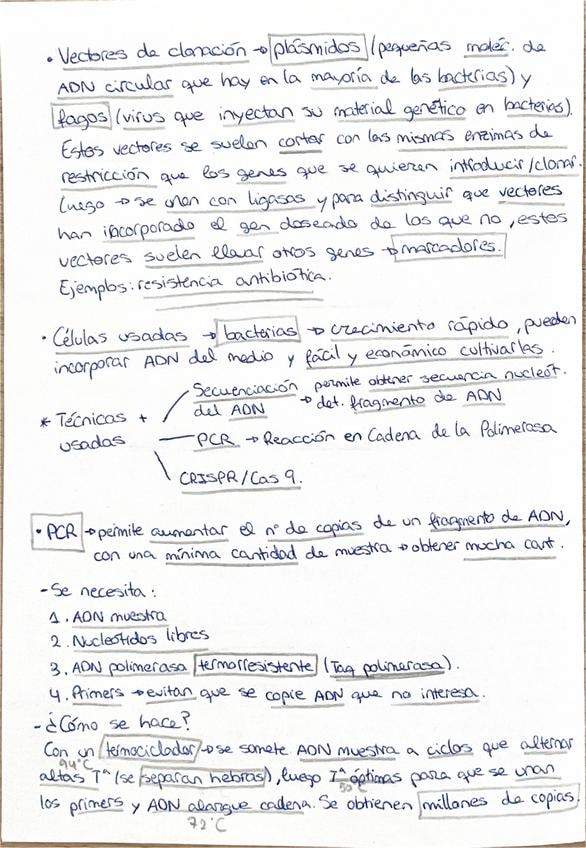 • Vectores de clonación → plásmidos (pequeñas moléc. de
ADN circular que hay en la mayoría de las bacterias) y
fagos (virus que inyectan su material genético en bacterias).
Estos vectores se suelen cortar con las mismas enzimas de
restricción que los genes que se quieren introducir/clonar.
Luego → se unen con ligasas y para distinguir que vectores
han incorporado el gen deseado de los que no, estos
vectores suelen llevar otros genes → marcadores.
Ejemplos: resistencia antibiótica.
• Células usadas → bacterias → crecimiento rápido, pueden
incorporar ADN del medio y fácil y económico cultivarlas.
* Técnicas + usadas
Secuenciación del ADN → permite obtener secuencia nucleót. det. fragmento de ADN
PCR → Reacción en Cadena de la Polimerasa
CRISPR/Cas 9.
• PCR → permite aumentar el nº de copias de un fragmento de ADN,
con una mínima cantidad de muestra → obtener mucha cant.
- Se necesita:
1. ADN muestra
2. Nucleótidos libres
3. ADN polimerasa termorresistente (Taq polimerasa).
4. Primers → evitan que se copie ADN que no interesa.
- ¿Cómo se hace?
Con un termociclador → se somete ADN muestra a ciclos que alternar
94°C
altas Tª (se separan hebras), luego Tª óptimas para que se unan
50°C
los primers y ADN alargue cadena. Se obtienen millones de copias.
72°C